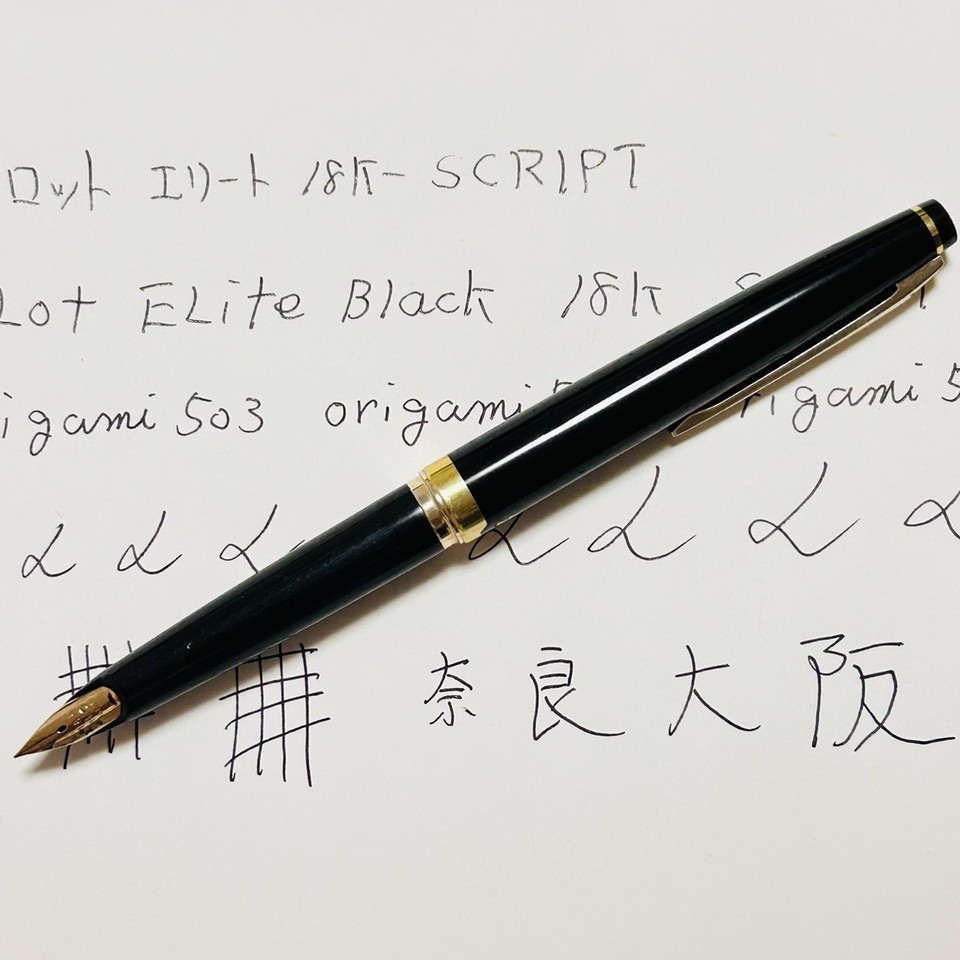 ロット エリート 18K-SCRIPT
Lot ELite Black 18K
igami 503 origami rigami 5
奈良 大阪